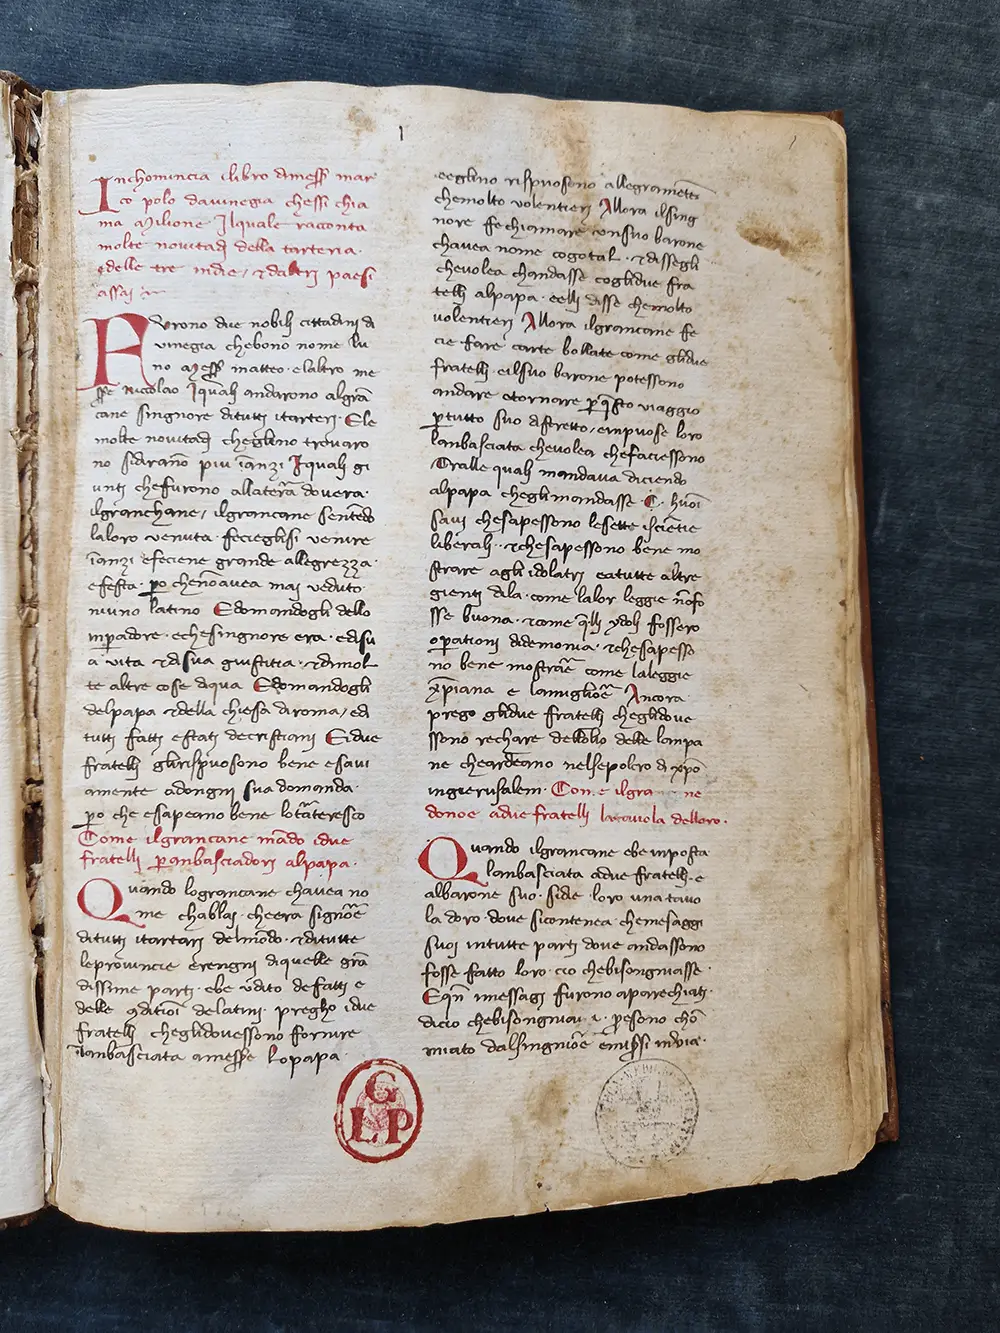 1
Inchomincia ilibro dimess mar
co polo davinegia chessi chia
ma Milione Ilquale racconta
molte novitadi della tarteria
edelle tre indie, & daltri paesi
assai
Furono due nobili cittadini di
vinegia chebono nome lu
no Mess matteo · elaltro me
ss Niccolao Iquali andarono algrā
cane singnore ditutti itarteri · Ele
molte novitadi cheglino trovaro
no sidirano piu īanzi Iquali gi
unti chefurono allaterā dovera ·
ilgranchane / ilgrancane sentēdo
laloro venuta · fecieglisi venire
īanzi efeciene grande allegrezza ·
efesta · po chenōavea mai veduto
niuno latino Edomandogli dello
inpadore · echesingnore era · edisu
a vita & disua giustitia · & dimol
te altre cose diqua Edomandogli
delpapa & della chiesa diroma / edi
tutti fatti estati decristiani Eidue
fratelli glirispuosono bene esavi
amente adongni sua domanda ·
po che esapeano bene lotāteresco
Come ilgrancane mādo idue
fratelli panbasciadori alpapa ·
Quando lograncane chavea no
me chablai · cheera signōe
ditutti itartari delmōdo · & ditutte
leprovincie erengni diquelle grā
dissime parti · ebe udito defatti e
delle 9ditioī delatini · pregho idue
fratelli cheglidovessono fornire
īanbasciata amesse Lopapa ·
eeglino rispuosono allegramētē
chemolto volentieri Allora ilsing
nore fe chiamare unsuo barone
chavea nome cogotal · & dissegli
chevolea chandasse coglidue fra
telli alpapa · eelli disse chemolto
volentieri Allora ilgrancane fe
cie fare carte bollate come glidue
fratelli · eilsuo barone potessono
andare etornare pqsto viaggio
ptutto suo distretto, einpuose loro
lanbasciata chevolea chefaciessono
Tralle quali mandava diciendo
alpapa cheglimandasse · C · huoī
savi chesapessono lesette iscientie
liberali · & chesapessono bene mo
strare agli idolatri eatutte altre
gienti dila · come lalor leggie nōfo
sse buona · & come qlli ydoli fossero
operationi didemonia · & chesapesso
no bene mostraē come laleggie
xpiana e lamigliōe Ancora
prego glidue fratelli cheglidove
ssono rechare dellolio delle lanpa
ne cheardeano nelsepolcro di xpo
ingierusalem · Come ilgrancane
donoe adue fratelli latavola delloro ·
Quando ilgrancane ebe inposta
lanbasciata adue fratelli · e
albarone suo · side loro una tavo
la doro dove sicontenea · chemesaggi
suoi intutte parti dove andassono
fosse fatto loro · cio chebisongniasse ·
Eqn imessagi furono aparechiati
dicio chebisongniavi · psono chō
miato dalsingniōe emissi invia ·
G
L P